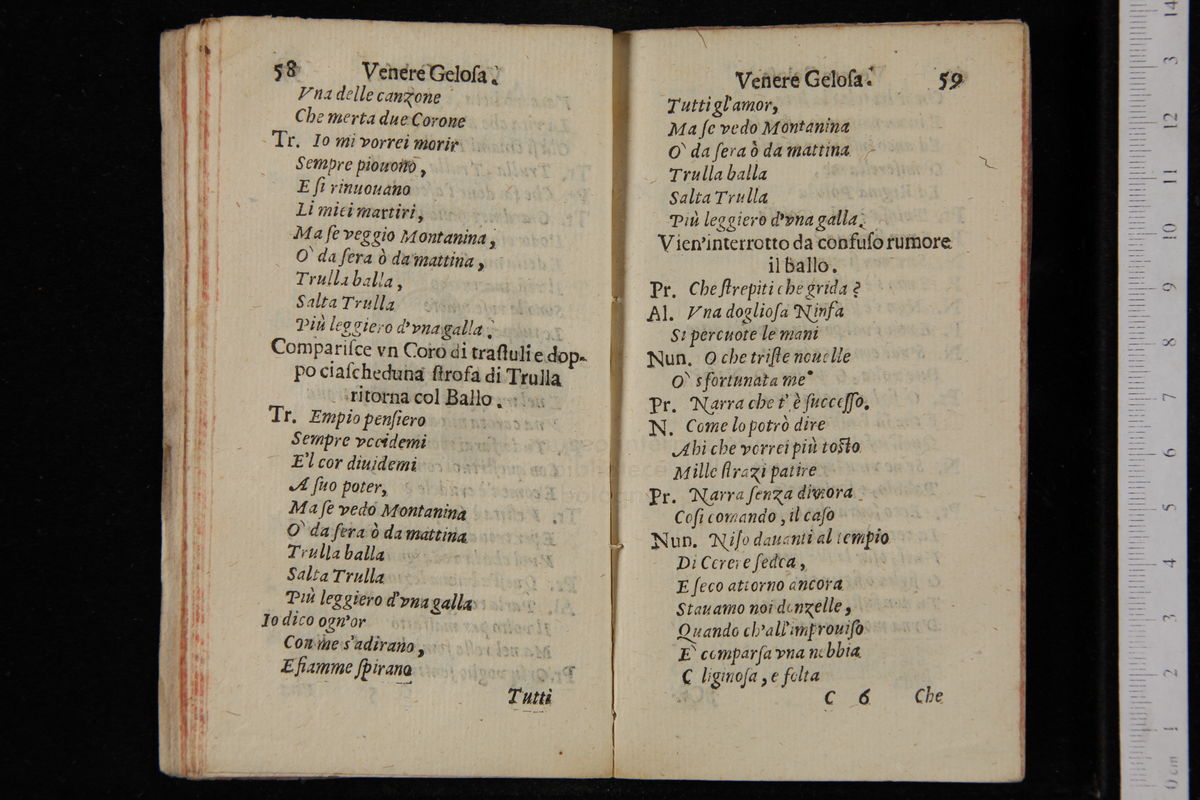 58 Venere Geloſa.
Vna delle canzone
Che merta due Corone
Tr. Io mi vorrei morir
Sempre piouono,
E ſi rinuouano
Li miei martiri,
Ma ſe veggio Montanina,
O` da ſera ò da mattina,
Trulla balla,
Salta Trulla
Più leggiero d'vna galla.
Compariſce vn Coro di traſtuli e dop-
po ciaſcheduna ſtrofa di Trulla
ritorna col Ballo.
Tr. Empio penſiero
Sempre vccidemi
E'l cor diuidemi
A ſuo poter,
Ma ſe vedo Montanina
O` da ſera ò da mattina
Trulla balla
Salta Trulla
Più leggiero d'vna galla
Io dico ogn'or
Con me s'adirano,
E fiamme ſpirano
Tutti
Venere Geloſa. 59
Tutti gl'amor,
Ma ſe vedo Montanina
O` da ſera ò da mattina
Trulla balla
Salta Trulla
Più leggiero d'vna galla.
Vien'interrotto da confuſo rumore
il ballo.
Pr. Che ſtrepiti che grida?
Al. Vna doglioſa Ninfa
Si percuote le mani
Nun. O che triſte nouelle
O` sfortunata me
Pr. Narra che t'è ſucceſſo.
N. Come lo potrò dire
Ahi che vorrei più toſto
Mille ſtrazi patire
Pr. Narra ſenza dimora
Coſi comando, il caſo
Nun. Niſo dauanti al tempio
Di Cerere ſedea,
E ſeco attorno ancora
Stauamo noi donzelle,
Quando ch'all'improuiſo
E` comparſa vna nebbia
C liginoſa, e folta
C 6 Che
14
3
12
11
10
9
8
7
6
5
4
3
2
1
0 cm